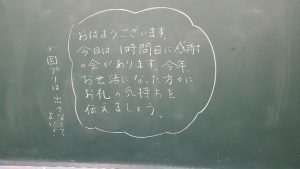 おはようございます。
今日は1時間目に感謝
の会があります。今年、
お世話になった方々に
お礼の気持ちを
伝えましょう。
※図プリは出さなくて
よい!